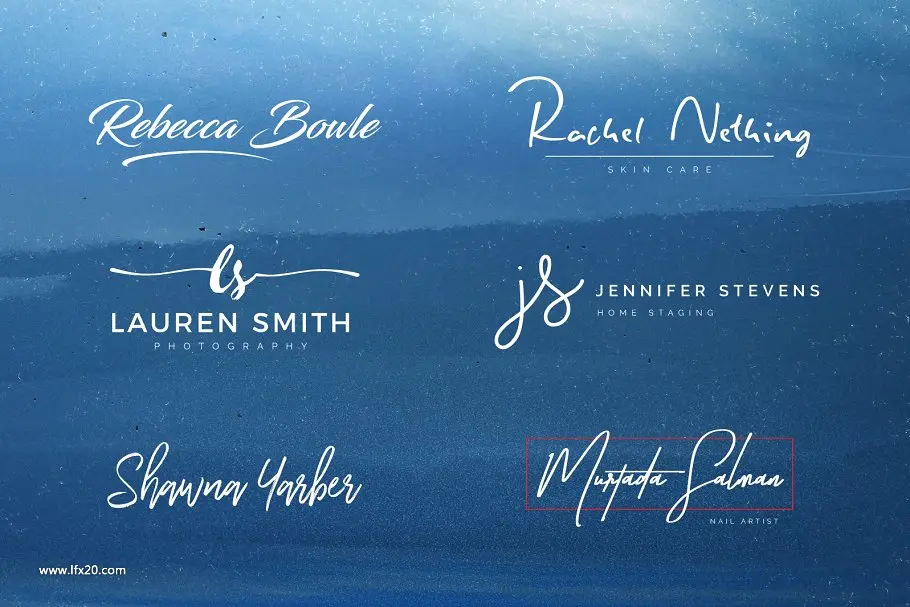 Rebecca Bowle
Rachel Nething
SKIN CARE
ls
LAUREN SMITH
PHOTOGRAPHY
js
JENNIFER STEVENS
HOME STAGING
Shawna Yarber
Murtada Salman
NAIL ARTIST
www.lfx20.com